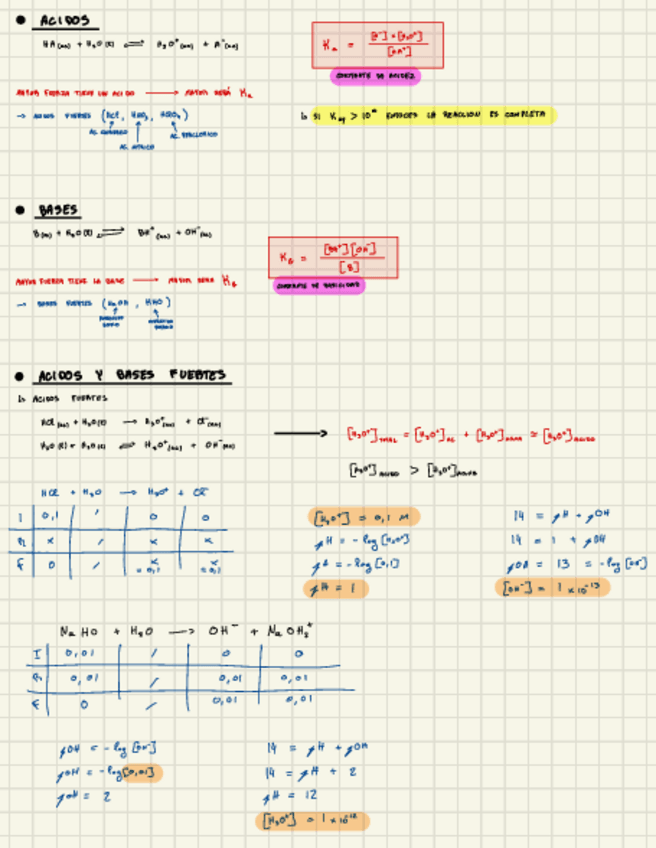 ● ACIDOS
HA(aq) + H₂O(l) ⇌ H₃O⁺(aq) + A⁻(aq)
Ka = [A⁻]·[H₃O⁺] / [HA]
CONSTANTE DE ACIDEZ
MAYOR FUERZA TIENE UN ACIDO → MAYOR SERÁ Ka
→ ACIDOS FUERTES (HCl, HNO₃, HClO₄)
AC. NITRICO
AC. PERCLORICO
↳ SI Keq > 10 ENTONCES LA REACCION ES COMPLETA
● BASES
B(aq) + H₂O(l) ⇌ BH⁺(aq) + OH⁻(aq)
KB = [BH⁺][OH⁻] / [B]
CONSTANTE DE BASICIDAD
MAYOR FUERZA TIENE LA BASE → MAYOR SERA KB
→ BASES FUERTES (NaOH, )
● ACIDOS Y BASES FUERTES
↳ ACIDOS FUERTES
HCl(aq) + H₂O(l) → H₃O⁺(aq) + Cl⁻(aq)
H₂O(l) + H₂O(l) ⇌ H₃O⁺(aq) + OH⁻(aq)
→ [H₃O⁺]TOTAL = [H₃O⁺]AC + [H₃O⁺]AGUA ≈ [H₃O⁺]ACIDO
[H₃O⁺]ACIDO > [H₃O⁺]AGUA
HCl + H₂O → H₃O⁺ + Cl⁻
I 0,1 / 0 0
R x / x x
F 0 / x = 0,1 x = 0,1
[H₃O⁺] = 0,1 M
pH = -log [H₃O⁺]
pH = -log [0,1]
pH = 1
14 = pH + pOH
14 = 1 + pOH
pOH = 13 = -log [OH⁻]
[OH⁻] = 1 x 10⁻¹³
NaHO + H₂O → OH⁻ + NaOH₂⁺
I 0,01 / 0 0
R 0,01 / 0,01 0,01
F 0 / 0,01 0,01
pOH = -log [OH⁻]
pOH = -log [0,01]
pOH = 2
14 = pH + pOH
14 = pH + 2
pH = 12
[H₃O⁺] = 1 x 10⁻¹²